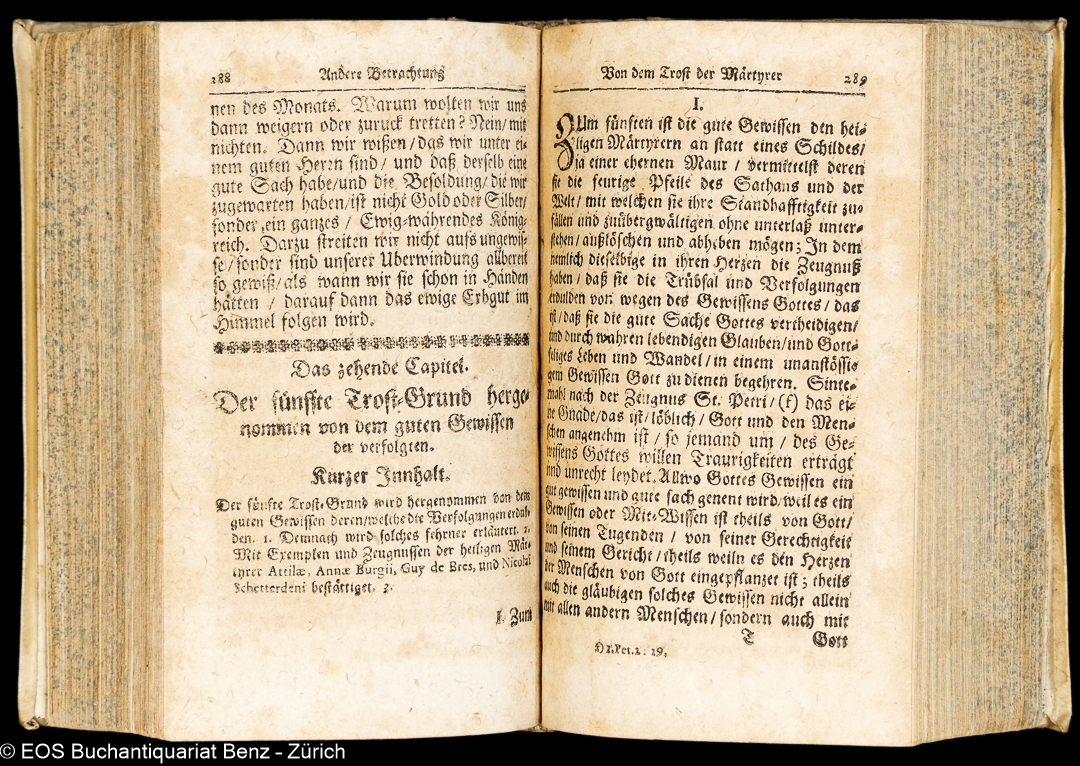 288 Andere Betrachtung
nen des Monats. Warum wolten wir uns
dann weigern oder zuruck tretten? Nein/ mit
nichten. Dann wir wißen/ das wir unter ei-
nem guten Herrn sind/ und daß derselb eine
gute Sach habe/ und die Besoldung/ die wir
zugewarten haben/ ist nicht Gold oder Silber/
sonder ein ganzes/ Ewig-währendes König-
reich. Darzu streiten wir nicht aufs ungewis-
se/ sonder sind unserer Uberwindung allbereit
so gewiß/ als wann wir sie schon in Händen
hätten / darauf dann das ewige Erbgut im
Himmel folgen wird.
Das zehende Capitel.
Der fünffte Trost-Grund herge-
nommen von dem guten Gewissen
der verfolgten.
Kurzer Innhalt.
Der fünffte Trost-Grund wird hergenommen von dem
guten Gewissen deren/ welche die Verfolgungen erdul-
den. 1. Demnach wird solches fehrner erläutert. 2.
Mit Exemplen und Zeugnussen der heiligen Mär-
tyrer Attilæ, Annæ Burgii, Guy de Bres, und Nicolai
Schetterdeni bestättiget. 3.
I. Zum
Von dem Trost der Märtyrer 289
I.
ZUm fünften ist die gute Gewissen den hei-
ligen Märtyrern an statt eines Schildes/
ja einer ehernen Maur / vermittelst deren
sie die feurige Pfeile des Sathans und der
Welt/ mit welchen sie ihre Standhafftigkeit zu-
fällen und zuübergwältigen ohne unterlaß unter-
stehen/ außlöschen und abheben mögen; In dem
nemlich dieselbige in ihren Herzen die Zeugnuß
haben / daß sie die Trübsal und Verfolgungen
erdulden von wegen des Gewissens Gottes/ das
ist/ daß sie die gute Sache Gottes vertheidigen/
und durch wahren lebendigen Glauben/ und Gott-
seliges Leben und Wandel/ in einem unanstössi-
gem Gewissen Gott zu dienen begehren. Sinte-
mahl nach der Zeugnus St. Petri/ (f) das ei-
ne Gnade/ das ist/ löblich/ Gott und den Men-
schen angenehm ist / so jemand um / des Ge-
wissens Gottes willen Traurigkeiten erträgt
und unrecht leydet. Allwo Gottes Gewissen ein
gut gewissen und gute sach genent wird/ weil es ein
Gewissen oder Mit-Wissen ist theils von Gott/
von seinen Tugenden / von seiner Gerechtigkeit
und seinem Gericht/ theils weiln es den Herzen
der Menschen von Gott eingepflanzet ist; theils
auch die gläubigen solches Gewissen nicht allein
mit allen andern Menschen/ sondern auch mit
T Gott
f) 1. Pet. 2: 19.
© EOS Buchantiquariat Benz - Zürich